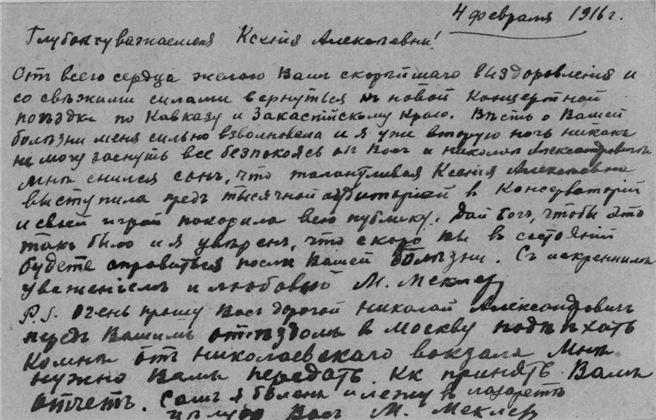 4 февраля 1916 г.
Глубокоуважаемая Ксенія Алексѣевна!
Отъ всего сердца желаю Вамъ скорѣйшаго выздоровленія и
со свѣжими силами вернуться къ новой концертной
поѣздкѣ по Кавказу и Закаспійскому Краю. Вѣсть о Вашей
болѣзни меня сильно взволновала и я уже вторую ночь никакъ
не могу заснуть все безпокоясь об Васъ и Николаѣ Александровичѣ
Мнѣ снился сонъ, что талантливая Ксенія Алексѣевна
выступила предъ тысячной аудиторіей в Консерваторіи
и своей игрой покорила всю публику. Дай богъ, чтобы это
такъ было и я увѣренъ, что скоро вы в состояніи
будете оправиться послѣ Вашей болѣзни. Съ искреннимъ
уваженіемъ и любовью М. Меклер
P.S. Очень прошу Васъ дорогой Николай Александровичъ
передъ Вашимъ отъѣздомъ в Москву подъѣхать
ко мнѣ отъ Николаевскаго вокзала Мнѣ
нужно Вамъ передать принять Вамъ
отчетъ. Самъ я боленъ и лежу в лазаретѣ
Васъ М. Меклер